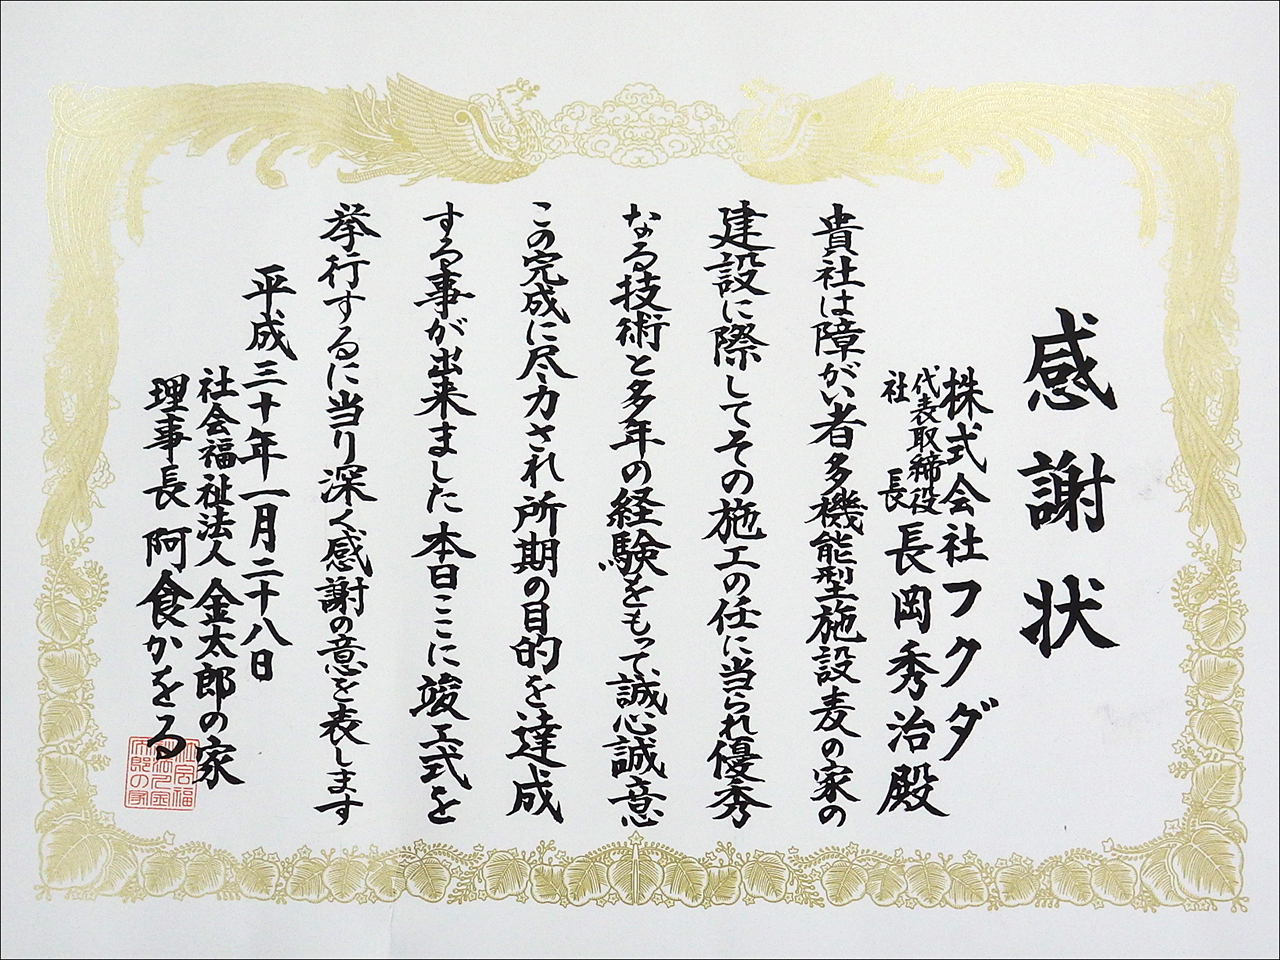 感謝状
株式会社フクダ
代表取締役
社長 長岡秀治殿
貴社は障がい者多機能型施設麦の家の
建設に際してその施工の任に当られ優秀
なる技術と多年の経験をもって誠心誠意
この完成に尽力され所期の目的を達成
する事が出来ました本日ここに竣工式を
挙行するに当り深く感謝の意を表します
平成三十年一月二十八日
社会福祉法人 金太郎の家
理事長 阿食かをる